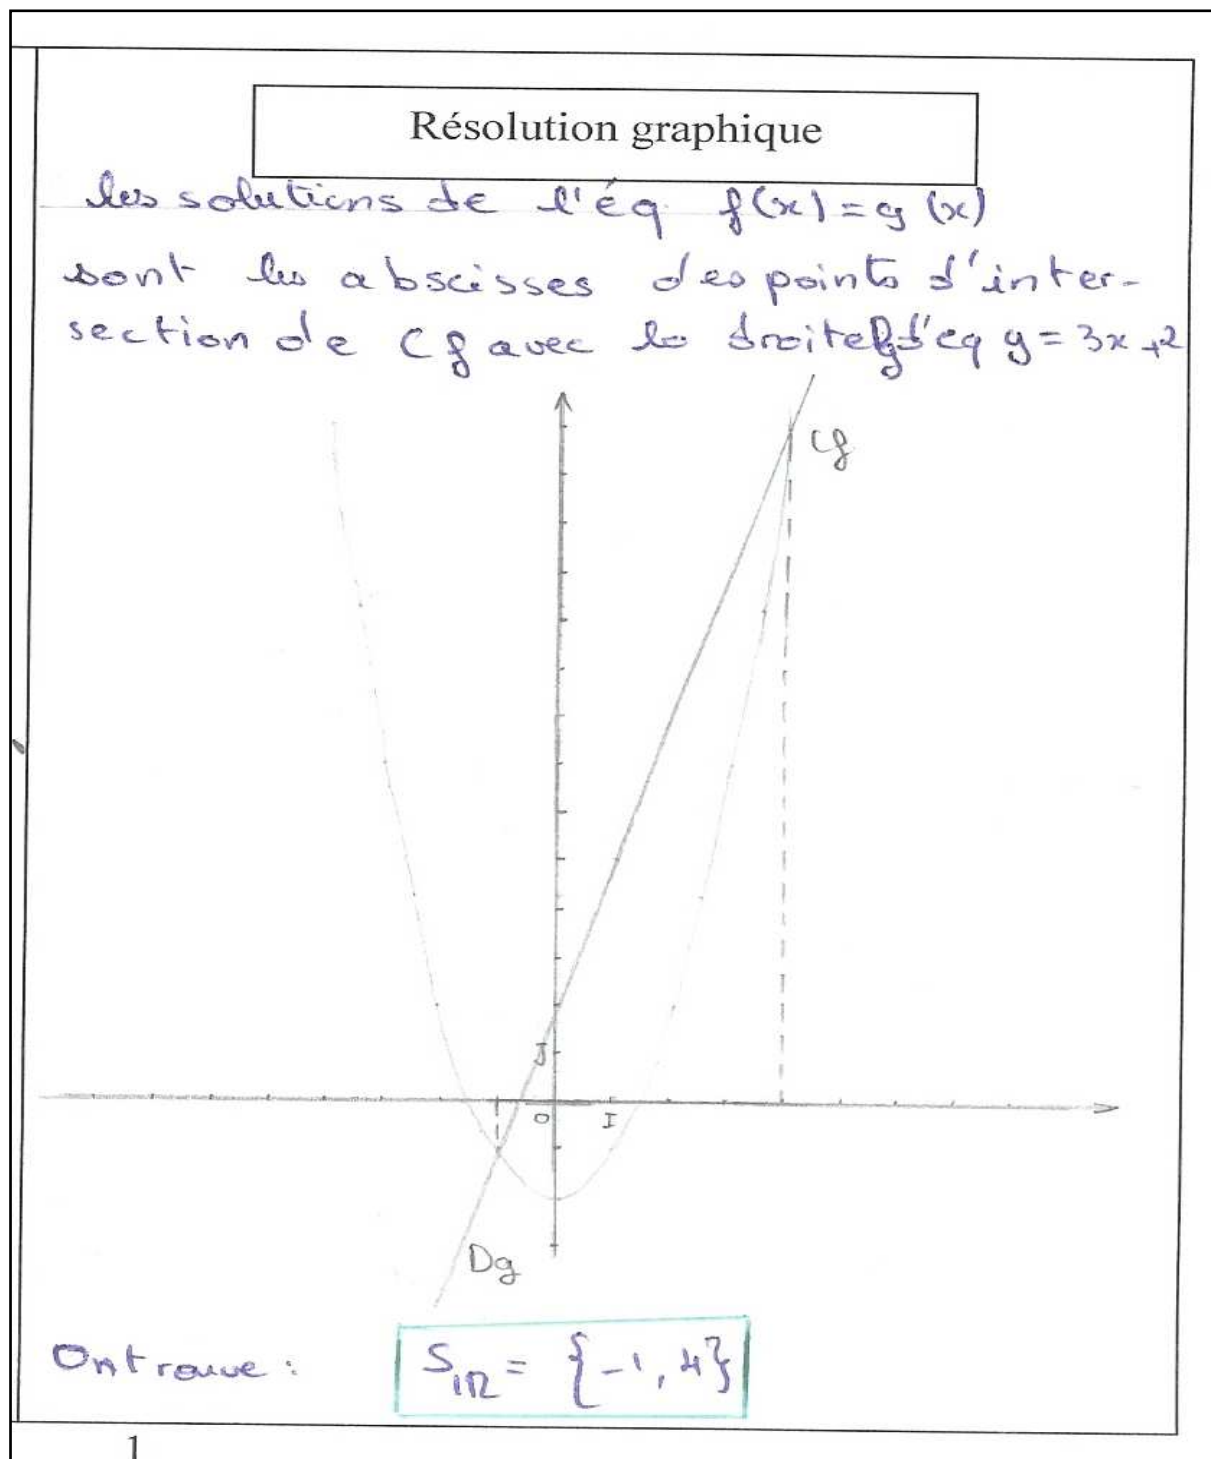 Résolution graphique
les solutions de l'éq f(x) = g(x)
sont les abscisses des points d'inter-
section de Cf avec la droite d'eq y = 3x+2
Cf
J
O
I
Dg
On trouve : S_IR = {-1, 4}
1